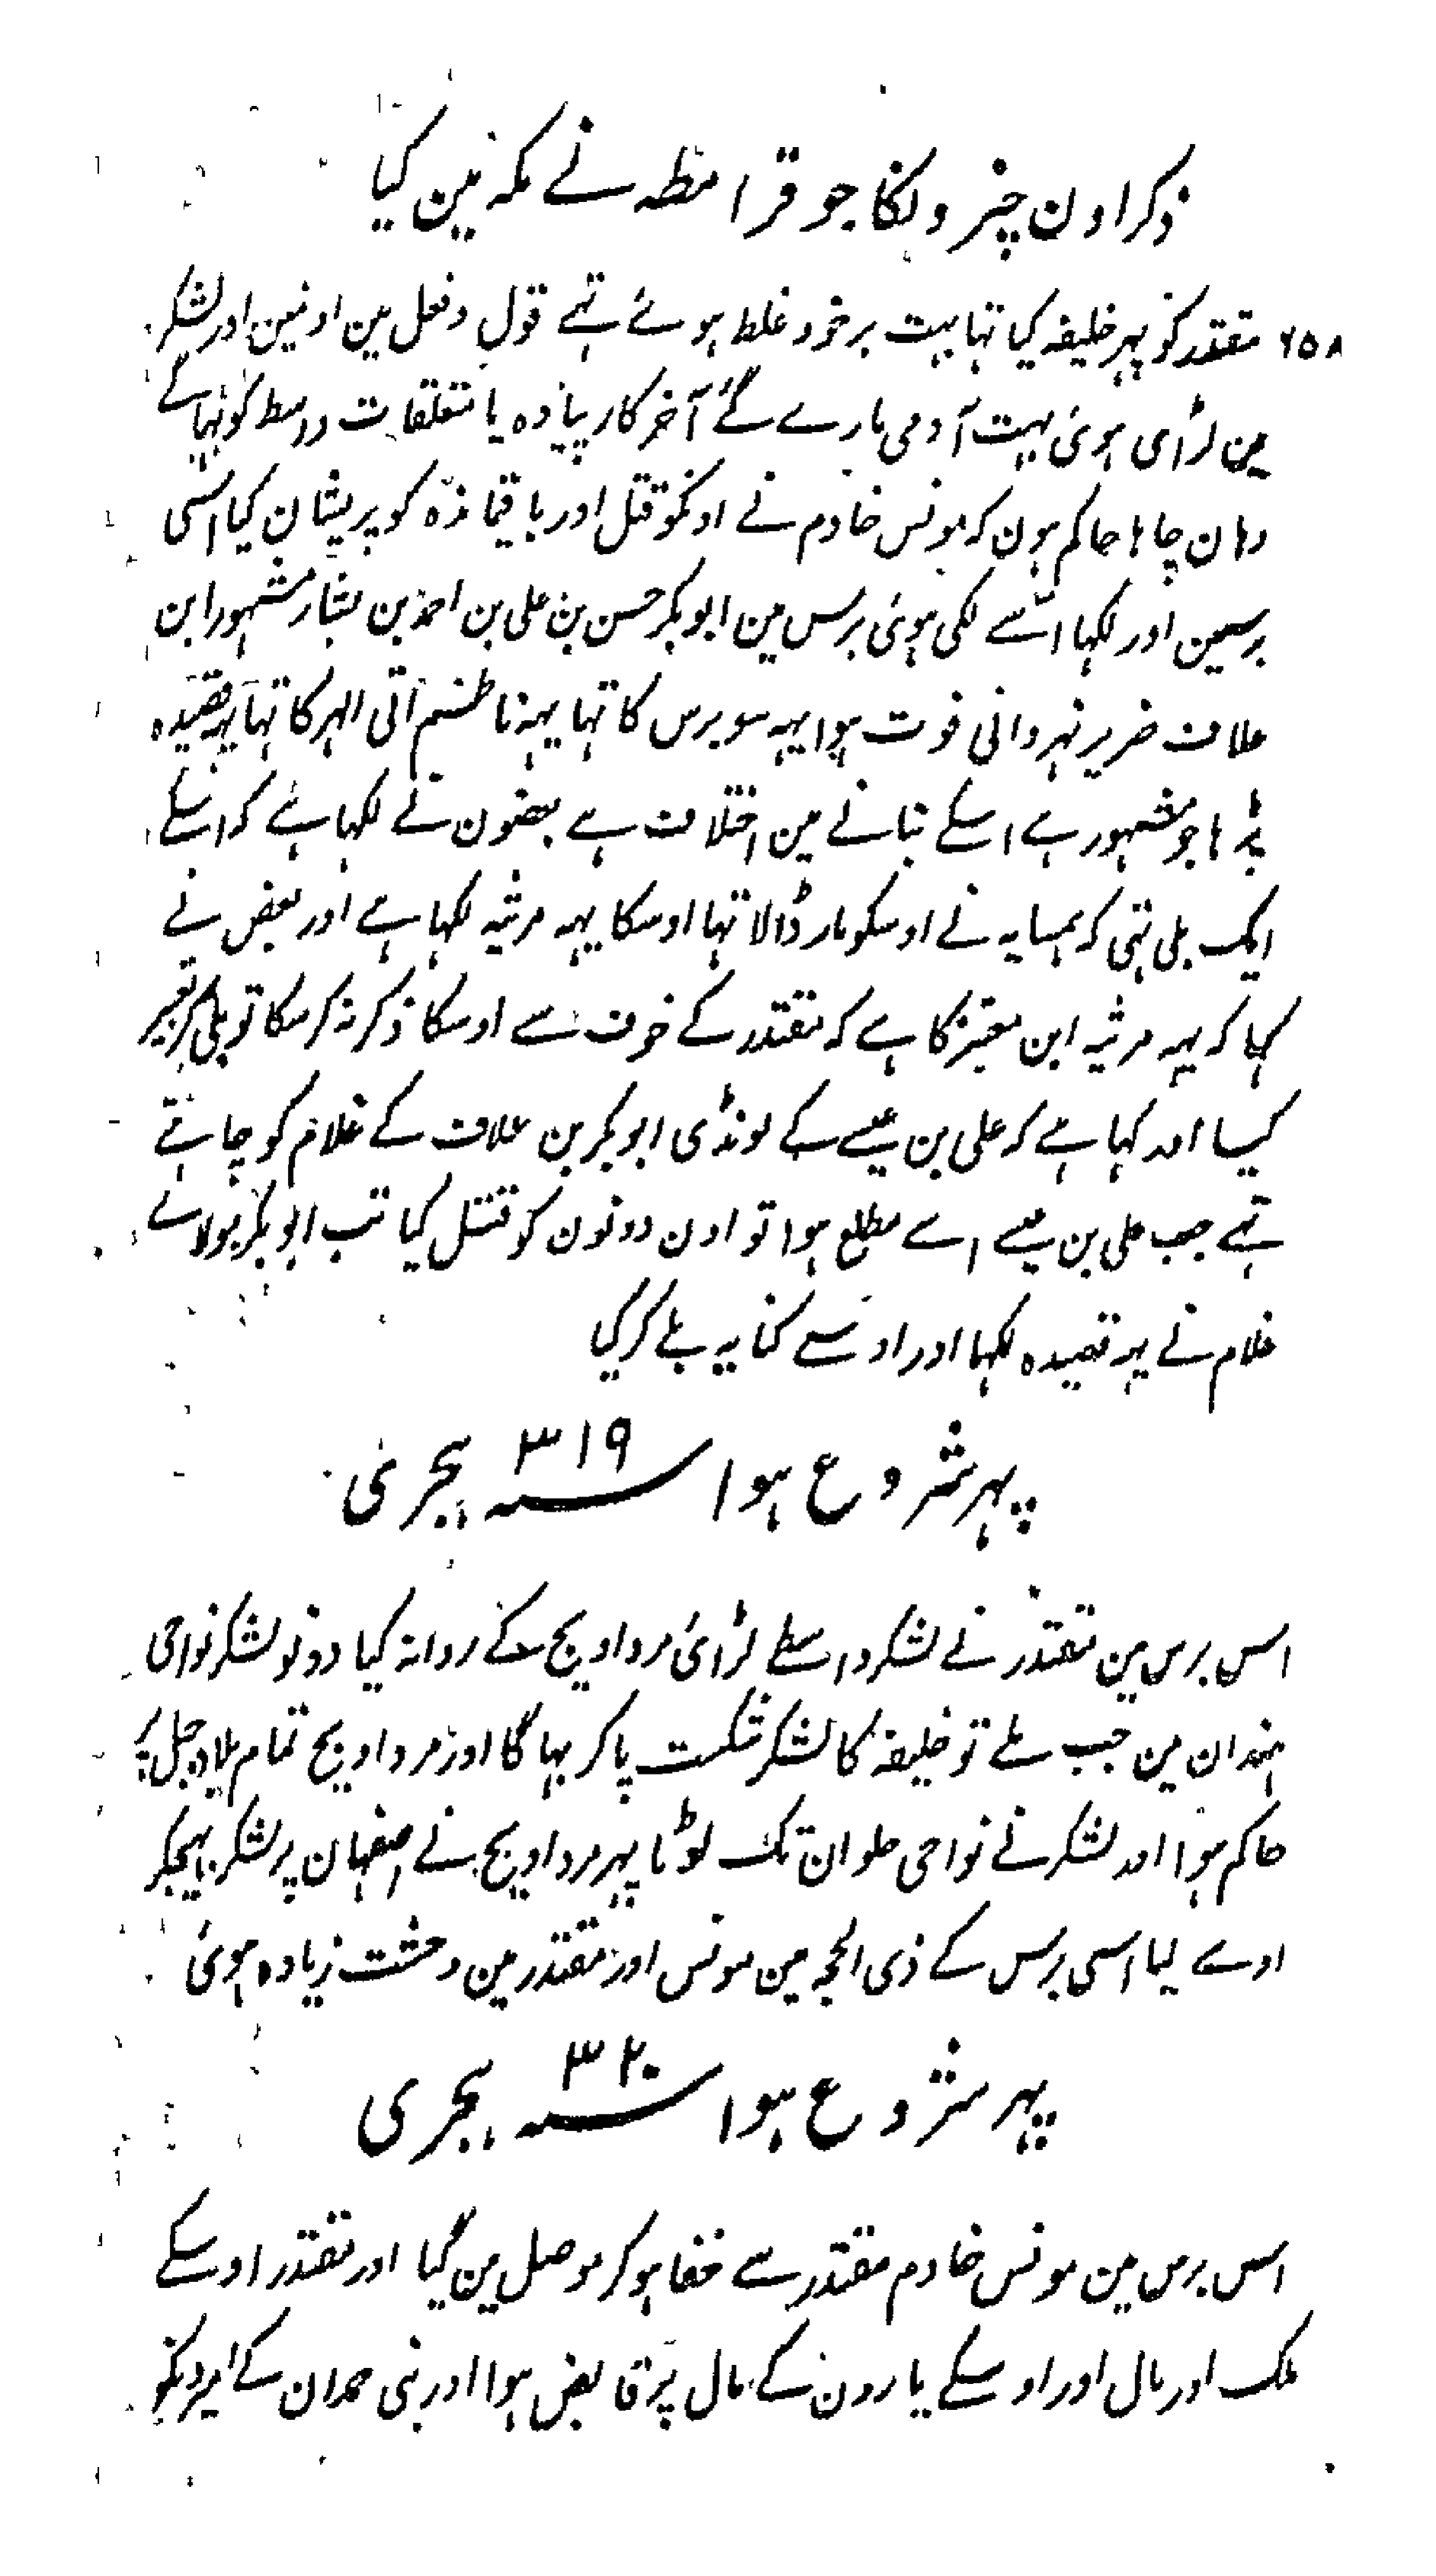 ذکر اون چیزونکا جو قرامطہ نے مکہ مین کیا
٦٥٨ مقتدر کو پہر خلیفہ کیا تہا بہت برخود غلط ہوئے تہے قول و فعل مین اونمین اور لشکر
مین لڑای ہوئی بہت آدمی مارے گئے آخر کار پیادہ یا متعلقات واسط کو بہاگے
وہان چاہا حاکم ہون کہ مونس خادم نے اونکو قتل اور باقیماندہ کو پریشان کیا اسی
برسمین اور لکہا اسے لگی ہوئی برس مین ابوبکر حسن بن علی بن احمد بن بشار مشہور ابن
علاف ضریر نہروانی فوت ہوا یہہ سو برس کا تہا یہہ ناظم اتی الہر کا تہا یہہ قصیدہ
بڑا جو مشہور ہے اسکے بنانے مین اختلاف ہے بعضون نے لکہا ہے کہ اسکے
ایک بلی تہی کہ ہمسایہ نے اوسکو مار ڈالا تہا اوسکا یہہ مرثیہ لکہا ہے اور بعض نے
کہا کہ یہہ مرثیہ ابن معتز کا ہے کہ مقتدر کے خوف سے اوسکا ذکر نہ کر سکا تو بلی کر تعبیر
کیا اور کہا ہے کہ علی بن عیسے کے لونڈی ابوبکر بن علاف کے غلام کو چاہتے
تہے جب علی بن عیسے اسے مطلع ہوا تو اون دونون کو قتل کیا تب ابوبکر مولائے
غلام نے یہ قصیدہ لکہا اور اوسے کنایہ بلے کر کیا
پہر شروع ہوا سنہ ٣١٩ ہجری
اس برس مین مقتدر نے لشکر واسطے لڑائی مرداویج کے روانہ کیا دونو لشکر نواحی
ہمدان مین جب ملے تو خلیفہ کا لشکر شکست پا کر بہاگا اور مرداویج تمام بلاد جبل پر
حاکم ہوا اور لشکر نے نواحی حلوان تک لوٹا پہر مرداویج نے اصفہان پر لشکر بہیجکر
اوسے لیا اسی برس کے ذی الحجہ مین مونس اور مقتدر مین وحشت زیادہ ہوئی
پہر شروع ہوا سنہ ٣٢٠ ہجری
اس برس مین مونس خادم مقتدر سے خفا ہو کر موصل مین گیا اور مقتدر اوسکے
ملک اور مال اور اوسکے یارون کے مال پر قابض ہوا اور بنی حمدان کے امیرونکو